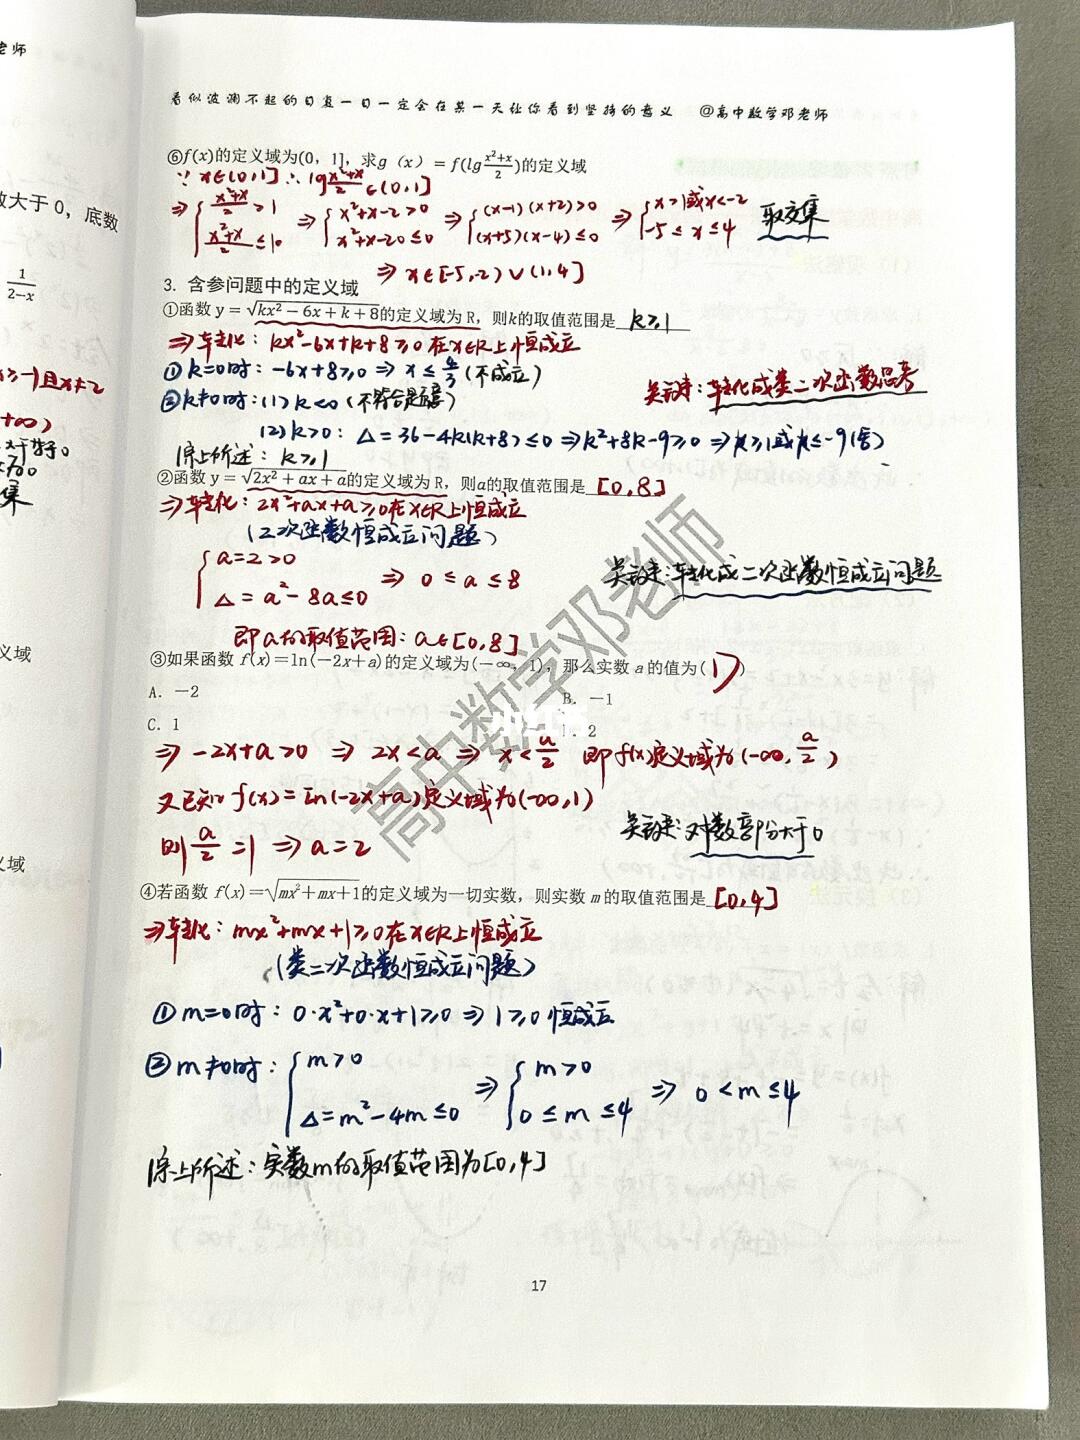 老师
数大于0，底数
1/(2−x)
看似波澜不起的日复一日一定会在某一天让你看到坚持的意义 @高中数学邓老师
⑥f(x)的定义域为(0，1]，求g（x）＝f(lg (x²+x)/2)的定义域
∵ x∈(0,1] ∴ lg (x²+x)/2 ∈(0,1]
⇒ { (x²+x)/2 >1 ⇒ { x²+x-2>0 ⇒ { (x-1)(x+2)>0 ⇒ { x>1或x<-2 取交集
(x²+x)/2 ≤10 x²+x-20≤0 (x+5)(x-4)≤0 -5≤x≤4
⇒ x∈[-5,-2)∪(1,4]
3. 含参问题中的定义域
①函数 y＝√(kx²−6x+k+8)的定义域为 R，则k的取值范围是 k≥1
⇒转化: kx²-6x+k+8≥0在x∈R上恒成立
①k=0时: -6x+8≥0 ⇒ x≤4/3 (不成立)
②k≠0时: (1) k<0 (不符合题意)
关键: 转化成类二次函数思考
(2) k>0: Δ=36-4k(k+8)≤0 ⇒k²+8k-9≥0 ⇒k≥1或k≤-9(舍)
综上所述: k≥1
②函数 y＝√(2x²+ax+a)的定义域为 R，则a的取值范围是 [0,8]
⇒转化: 2x²+ax+a≥0在x∈R上恒成立
(二次函数恒成立问题)
{ a=2>0
Δ=a²-8a≤0 ⇒ 0≤a≤8
关键: 转化成二次函数恒成立问题
即a的取值范围: a∈[0,8]
③如果函数 f(x)＝ln(−2x+a)的定义域为(−∞，1)，那么实数 a 的值为( D )
A．−2 B．−1
C．1 D．2
⇒ -2x+a>0 ⇒ 2x<a ⇒ x<a/2 即f(x)定义域为(-∞, a/2)
又已知f(x)=ln(-2x+a)定义域为(-∞,1)
则 a/2 =1 ⇒ a=2
关键: 对数部分大于0
④若函数 f(x)＝√(mx²+mx+1)的定义域为一切实数，则实数 m 的取值范围是 [0,4]
⇒转化: mx²+mx+1≥0在x∈R上恒成立
(类二次函数恒成立问题)
①m=0时: 0·x²+0·x+1≥0 ⇒ 1≥0 恒成立
②m≠0时: { m>0 ⇒ { m>0 ⇒ 0<m≤4
Δ=m²-4m≤0 0≤m≤4
综上所述: 实数m的取值范围为[0,4]
高中数学邓老师
17